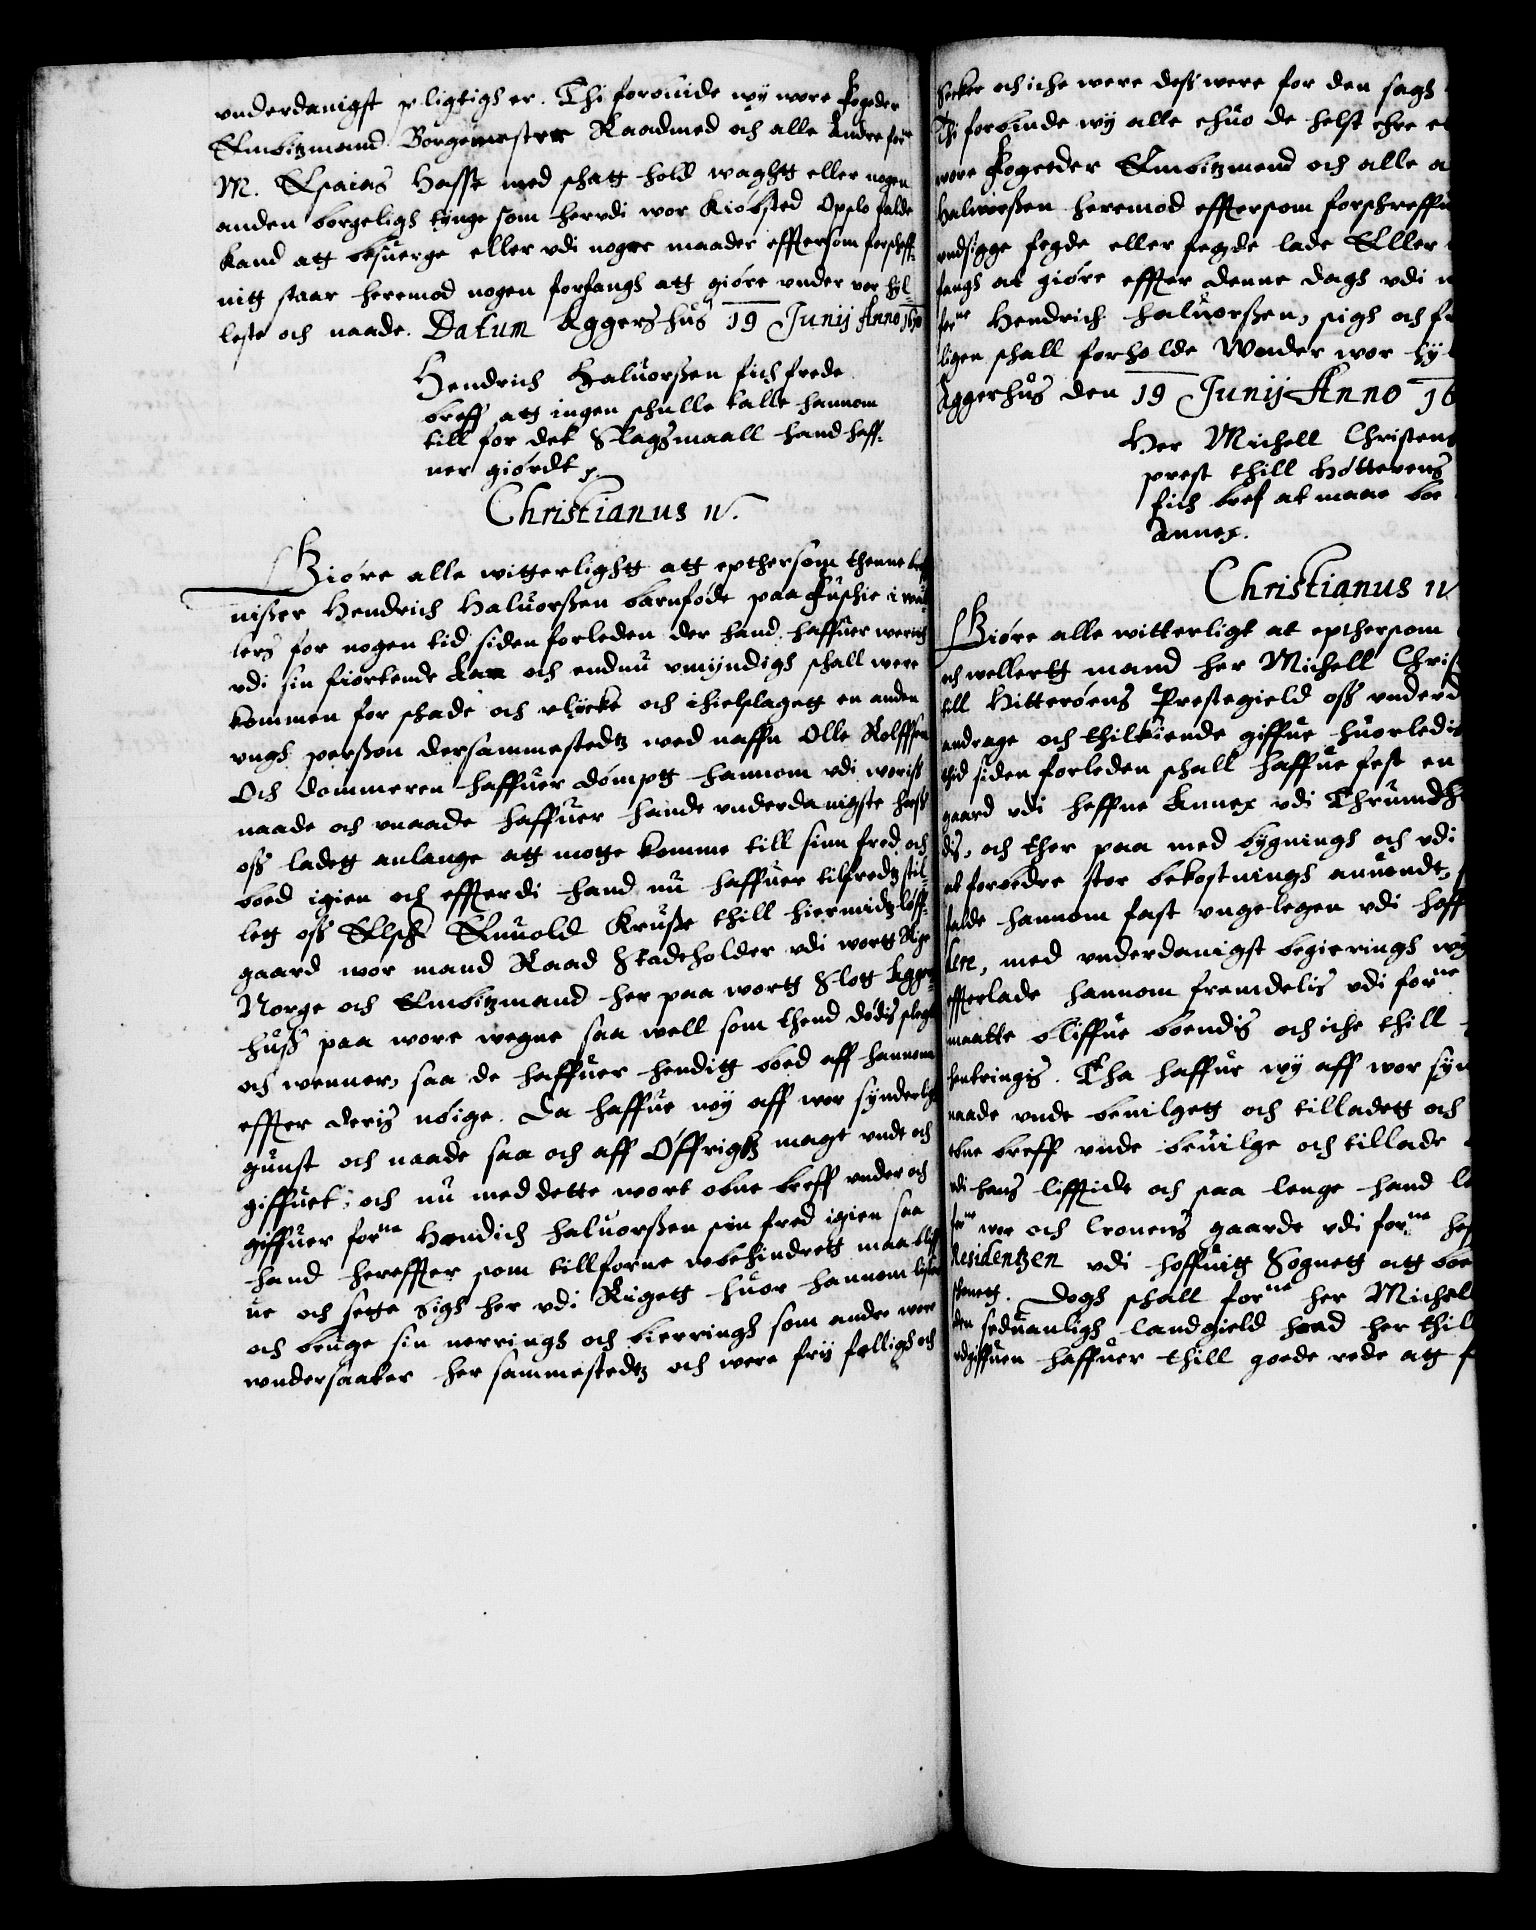 vnderdanigst pligtigh er. Thi forbiude wij wore Fogeder
Embitzmand Borgemester Raadmed och alle Andre forne
M. Esaias Hosse med schatt hold waghtt eller nogen
anden borgeligh tynge som herudi wor Kiøbsted Opslo falde
kand att besuerge eller vdi nogre maader effttersom forscheff-
nitt staar heremod nogen forfangh att giøre vnder vor hÿl-
leste och naade. Datum Aggershus 19 Junij Anno
Hendrich Haluorßen fich frede
breff att ingen schulle talle hannom
till for det Slagsmaall hand haff-
uer giørdt
Christianus 4.
Giøre alle witterlightt att epthersom thenne breff
uißer Hendrich Haluorßen barnføde paa
lers for nogen tid siden forleden der hand haffuer werich
vdi sin fiortende Aar och endnu vmyndigh schall were
kommen for schade och vlycke och ihielslagett en anden
ungh perßon dersammestedtz wed naffn Olle Rolfffsen
Och dommeren haffuer dømptt hannom vdi woriß
naade och vnaade haffuer hande vnderdanigste hoß
oß ladett anlange att motte komme till sinn fred och
boed igien och effterdi hand nu haffuer tilfredtz stil-
lett oß Elsch Enuold Kruße thill Hiermidtzløff-
gaard wor mand Raad Stadtholder vdi wortt Rige
Norge och Embitzmand her paa wortt Slott Agger-
huß paa wore wegne saa well som thend dødis slegt
och wenner, saa de haffuer henditt boed aff hannom
effter deris nøige. Da haffue wÿ aff wor sÿnderlig
gunst och naade saa och aff Øffrighz magt vndt och
giffuet, och nu med dette wort obne breff vnder och
giffuer forne Hendich Haluorßen sin fred igien saa
hand hereffter som tillforne wbehindrett maa bliff-
ue och sette sigh her vdi Rigett huor hannom lyster
och bruge sin nerringh och bierringh som andre wore
wndersaatter her sammestedtz och were frij felligh och
secker och iche were deß were for den sagh
Thi forbinde wÿ alle ehuo de helst ehre e
wore Fogeder Embitzmend och alle a
Haluorßen heremod effttersom forschreffu
undsigge fegde eller fegde lade Eller
fangh at giøre effter denne dagh vdi n
forne Hendrich Haluorßen, sigh och fr
ligen schall forholde Wnder wor hÿ
Aggerhus den 19 Junij Anno 16
Her Michell Christens
prest thill Hitterens
fich bref at maae boe
Annex.
Christianus 4
Giøre alle witterligt at epthersom
och wellertt mand her Michell Chris
till Hitterøens Prestegield oß vnderd
andrage och thilkiende giffue huorledis
thid siden forleden schall haffue fest en
gaard vdi Heffne Annex vdi Thrundh
dis, och ther paa med bygningh och vdi
at forbedre stor bekostningh anuendt,
falde hannom fast vngelegen vdi hoff
lere, med vnderdanigst begieringh wÿ
effterlade hannom fremdelis vdi forne
maatte bliffue boendis och iche thill
hentringis. Tha haffue wÿ aff wor syn
naade vnde beuilgett och tilladett och
obne breff vnde beuilge och tillade
vdi hans lifftidt och saa lenge hand le
forne wor och Cronens gaarde vdi forne hef
Residentzen vdi hoffuitt Sognett att boe
Dogh schall forne her Michell
den seduanligh landgield hand her thil
vdgiffuen haffuer thill goede rede att f